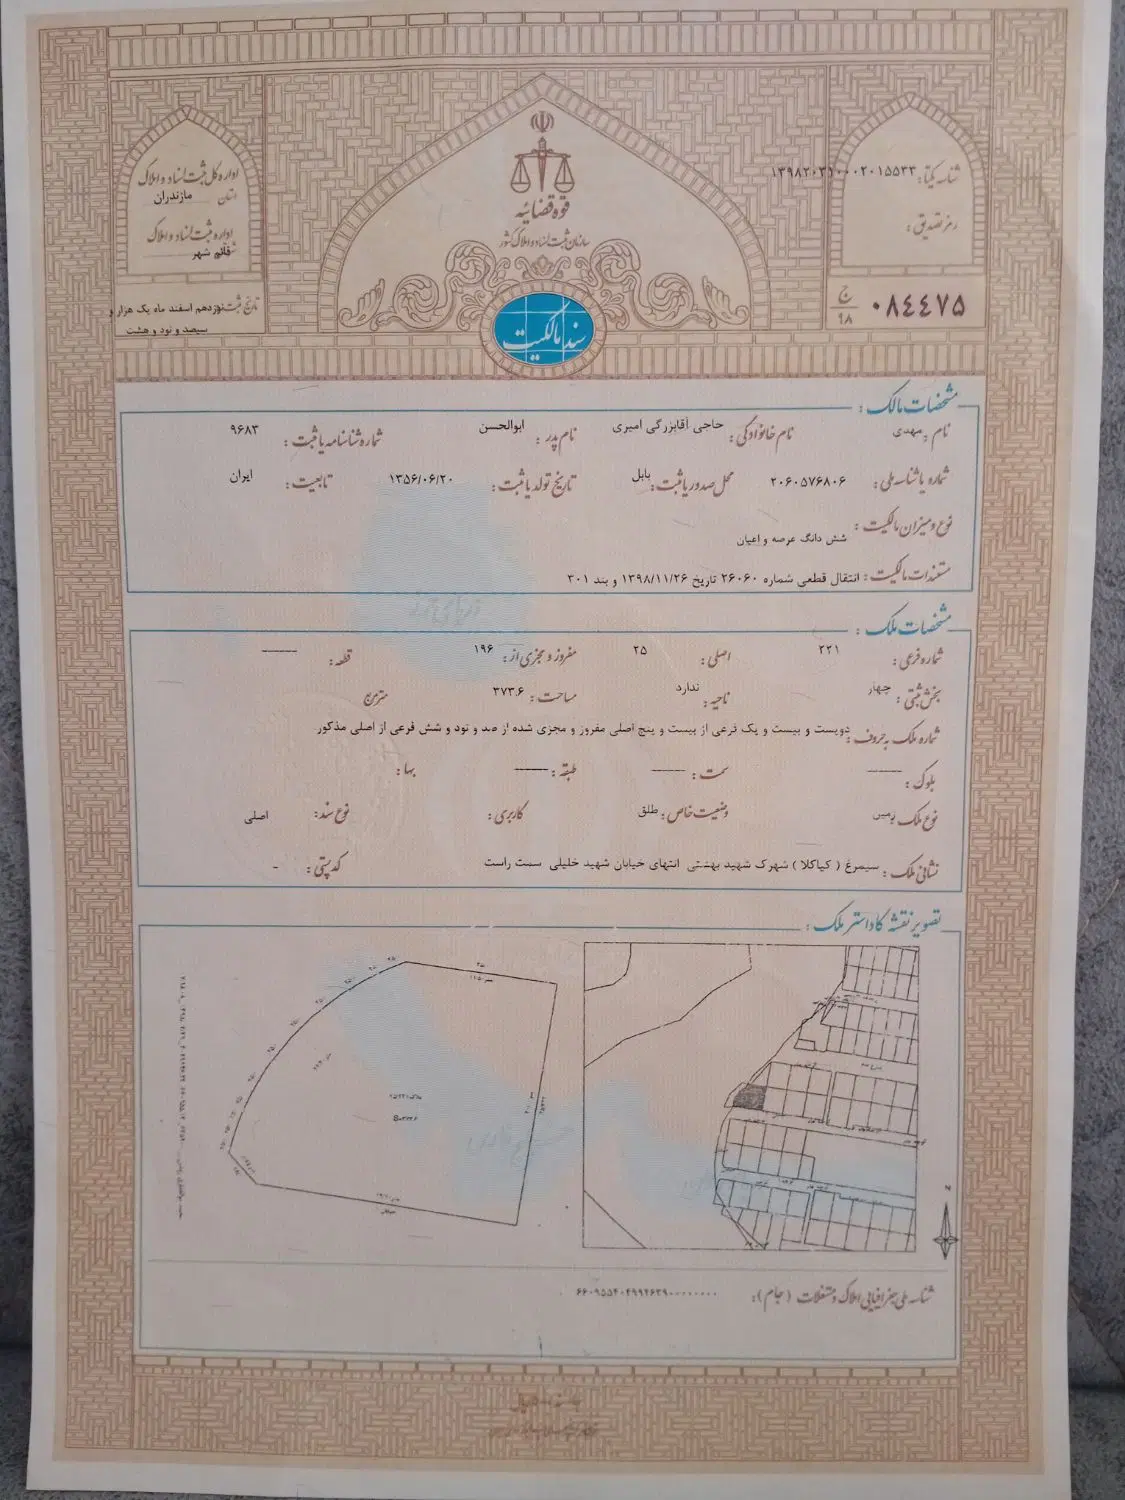 قوه قضائیه
سازمان ثبت اسناد و املاک کشور
اداره کل ثبت اسناد و املاک
استان مازندران
اداره ثبت اسناد و املاک
قائم شهر
تاریخ ثبت: نوزدهم اسفند ماه یک هزار و
سیصد و نود و هشت
شناسه یکتا: ۱۳۹۸۲۰۳۱۰۰۰۲۰۱۵۵۳۳
رمز تصدیق:
ج
۹۸
۰۸۴۴۷۵
سند مالکیت
مشخصات مالک:
نام: مهدی نام خانوادگی: حاجی آقابزرگی امیری نام پدر: ابوالحسن شماره شناسنامه یا ثبت: ۹۶۸۳
شماره یا شناسه ملی: ۲۰۶۰۵۷۶۸۰۶ محل صدور یا ثبت: بابل تاریخ تولد یا ثبت: ۱۳۵۶/۰۶/۲۰ تابعیت: ایران
نوع و میزان مالکیت: شش دانگ عرصه و اعیان
مستندات مالکیت: انتقال قطعی شماره ۲۶۰۶۰ تاریخ ۱۳۹۸/۱۱/۲۶ و بند ۳۰۱
مشخصات ملک:
شماره فرعی: ۲۲۱ اصلی: ۲۵ مفروز و مجزی از: ۱۹۶ قطعه: ——
بخش ثبتی: چهار ناحیه: ندارد مساحت: ۳۷۳.۶ متر مربع
شماره ملک به حروف: دویست و بیست و یک فرعی از بیست و پنج اصلی مفروز و مجزی شده از صد و نود و شش فرعی از اصلی مذکور
بلوک: —— سمت: —— طبقه: —— بها:
نوع ملک: زمین وضعیت خاص: طلق کاربری: نوع سند: اصلی
نشانی ملک: سیمرغ ( کیاکلا ) شهرک شهید بهشتی انتهای خیابان شهید خلیلی سمت راست کد پستی: -
تصویر نقشه کاداستر ملک:
شناسه ملی جغرافیایی املاک و مستغلات (جام): ۶۶۰۹۵۵۴۰۴۹۹۴۶۳۹۰۰۰۰۰۰۰۰